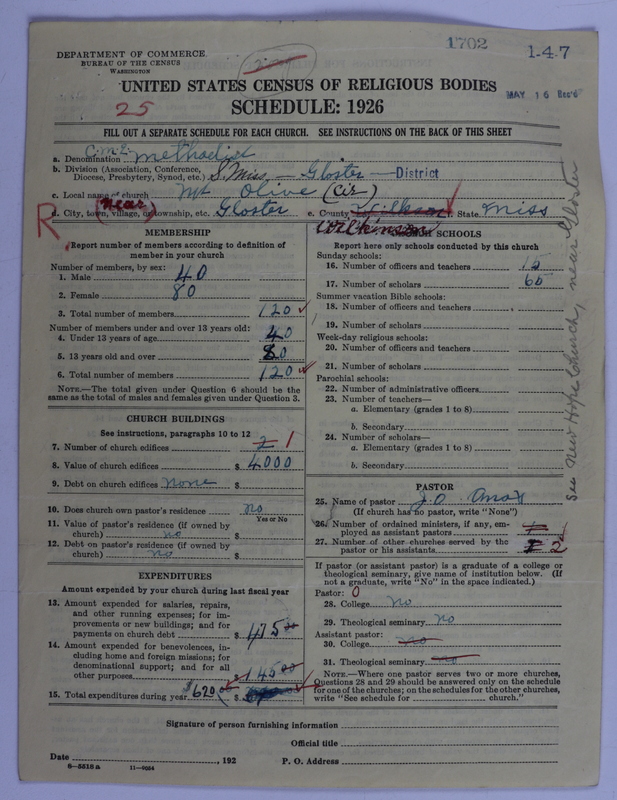 1702
1-4-7
DEPARTMENT OF COMMERCE
BUREAU OF THE CENSUS
WASHINGTON
UNITED STATES CENSUS OF RELIGIOUS BODIES
MAY 16
25
SCHEDULE: 1926
FILL OUT A SEPARATE SCHEDULE FOR EACH CHURCH. SEE INSTRUCTIONS ON THE BACK OF THIS SHEET
a. Denomination C.M.E. Methodist
b. Division (Association, Conference, Diocese, Presbytery, Synod, etc.) S. Miss. — Gloster — District
c. Local name of church Mt Olive (Cir)
R
d. City, town, village, or township, etc. (near) Gloster e. County Wilkinson State Miss
MEMBERSHIP
Report number of members according to definition of member in your church
Number of members by sex:
1. Male 40
2. Female 80
3. Total number of members 120
Number of members under and over 13 years old:
4. Under 13 years of age 40
5. 13 years old and over 80
6. Total number of members 120
NOTE.—The total given under Question 6 should be the same as the total of males and females given under Question 3.
CHURCH BUILDINGS
See instructions, paragraphs 10 to 12
7. Number of church edifices 2 1
8. Value of church edifices $ 4000
9. Debt on church edifices none $
10. Does church own pastor's residence no
Yes or No
11. Value of pastor's residence (if owned by church) no $
12. Debt on pastor's residence (if owned by church) no $
EXPENDITURES
Amount expended by your church during last fiscal year
13. Amount expended for salaries, repairs, and other running expenses; for improvements or new buildings; and for payments on church debt $ 475 00
14. Amount expended for benevolences, including home and foreign missions; for denominational support; and for all other purposes $ 145 00
15. Total expenditures during year $620 $
SCHOOLS
Report here only schools conducted by this church
Sunday schools:
16. Number of officers and teachers
17. Number of scholars
Summer vacation Bible schools:
18. Number of officers and teachers
19. Number of scholars
Week-day religious schools:
20. Number of officers and teachers
21. Number of scholars
Parochial schools:
22. Number of administrative officers
23. Number of teachers—
a. Elementary (grades 1 to 8)
b. Secondary
24. Number of scholars—
a. Elementary (grades 1 to 8)
b. Secondary
PASTOR
25. Name of pastor J.O.
(If church has no pastor, write "None")
26. Number of ordained ministers, if any, employed as assistant pastors
27. Number of other churches served by the pastor or his assistants 2
If pastor (or assistant pastor) is a graduate of a college or theological seminary, give name of institution below. (If not a graduate, write "No" in the space indicated.)
Pastor: 0
28. College no
29. Theological seminary no
Assistant pastor:
30. College no
31. Theological seminary no
NOTE.—Where one pastor serves two or more churches, Questions 28 and 29 should be answered only on the schedule for one of the churches; on the schedules for the other churches, write "See schedule for church."
See New Hope Church, near Gloster
Signature of person furnishing information
Official title
Date , 192
P. O. Address
8—5518 a 11—9054